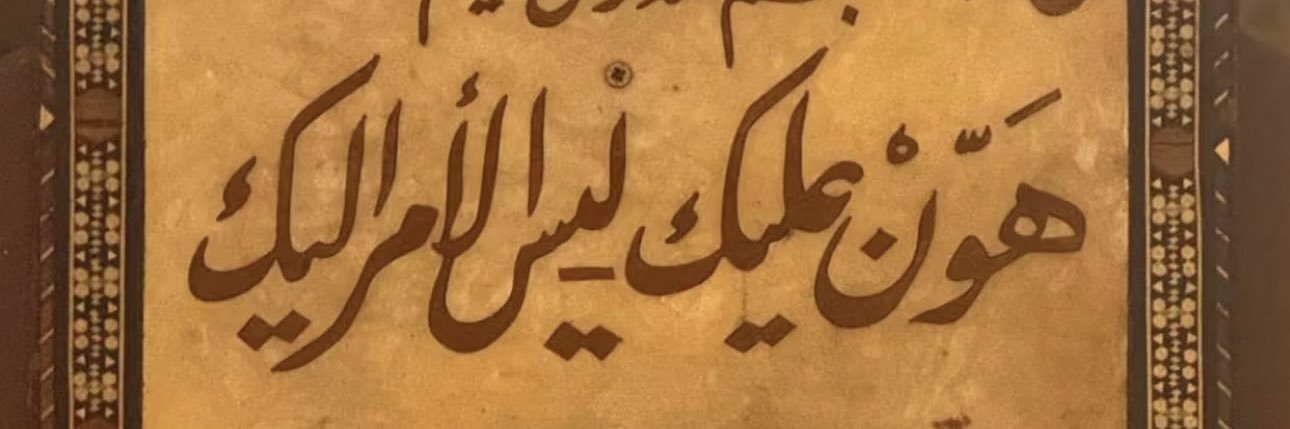 هَوّنْ عليك ليس الأمر اليك